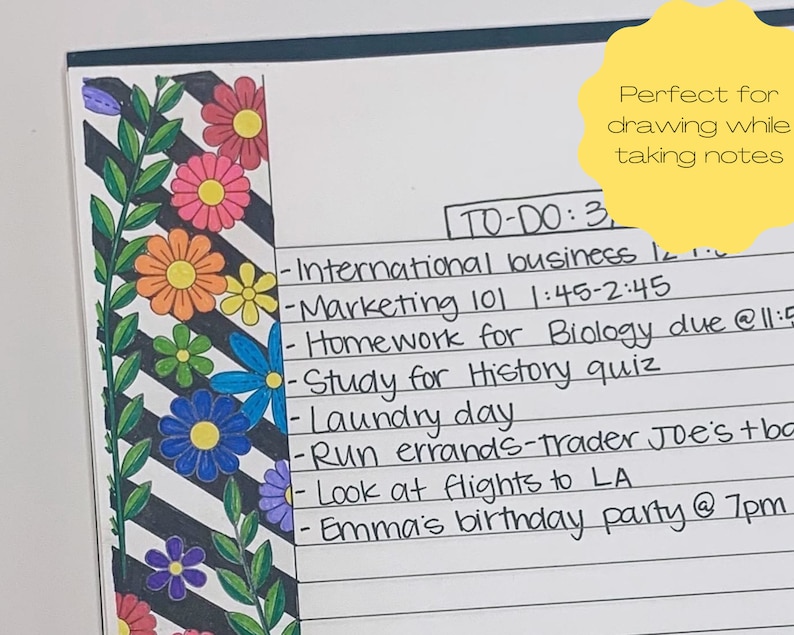 Perfect for
drawing while
taking notes
TO-DO: 3/
-International business
-Marketing 101 1:45-2:45
- Homework for Biology due @ 11:5
-Study for History quiz
-Laundry day
-Run errands-Trader Joe's +
- Look at flights to LA
- Emma's birthday party @ 7pm